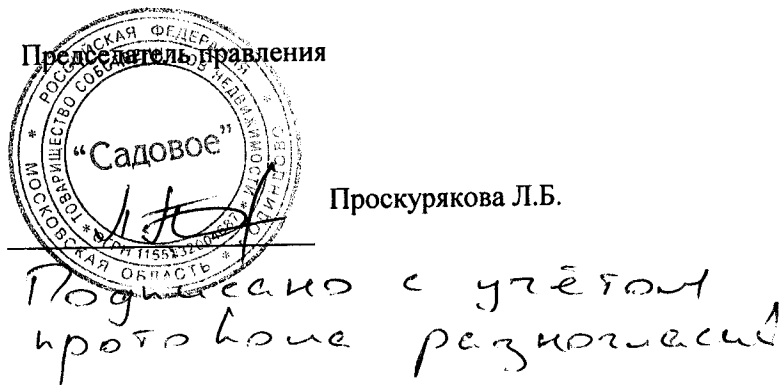 Председатель правления
РОССИЙСКАЯ ФЕДЕРАЦИЯ * ОБОЛДИНО * МОСКОВСКАЯ ОБЛАСТЬ *
ТОВАРИЩЕСТВО СОБСТВЕННИКОВ НЕДВИЖИМОСТИ *
“Садовое”
Проскурякова Л.Б.
Подписано с учётом
протокола разногласий